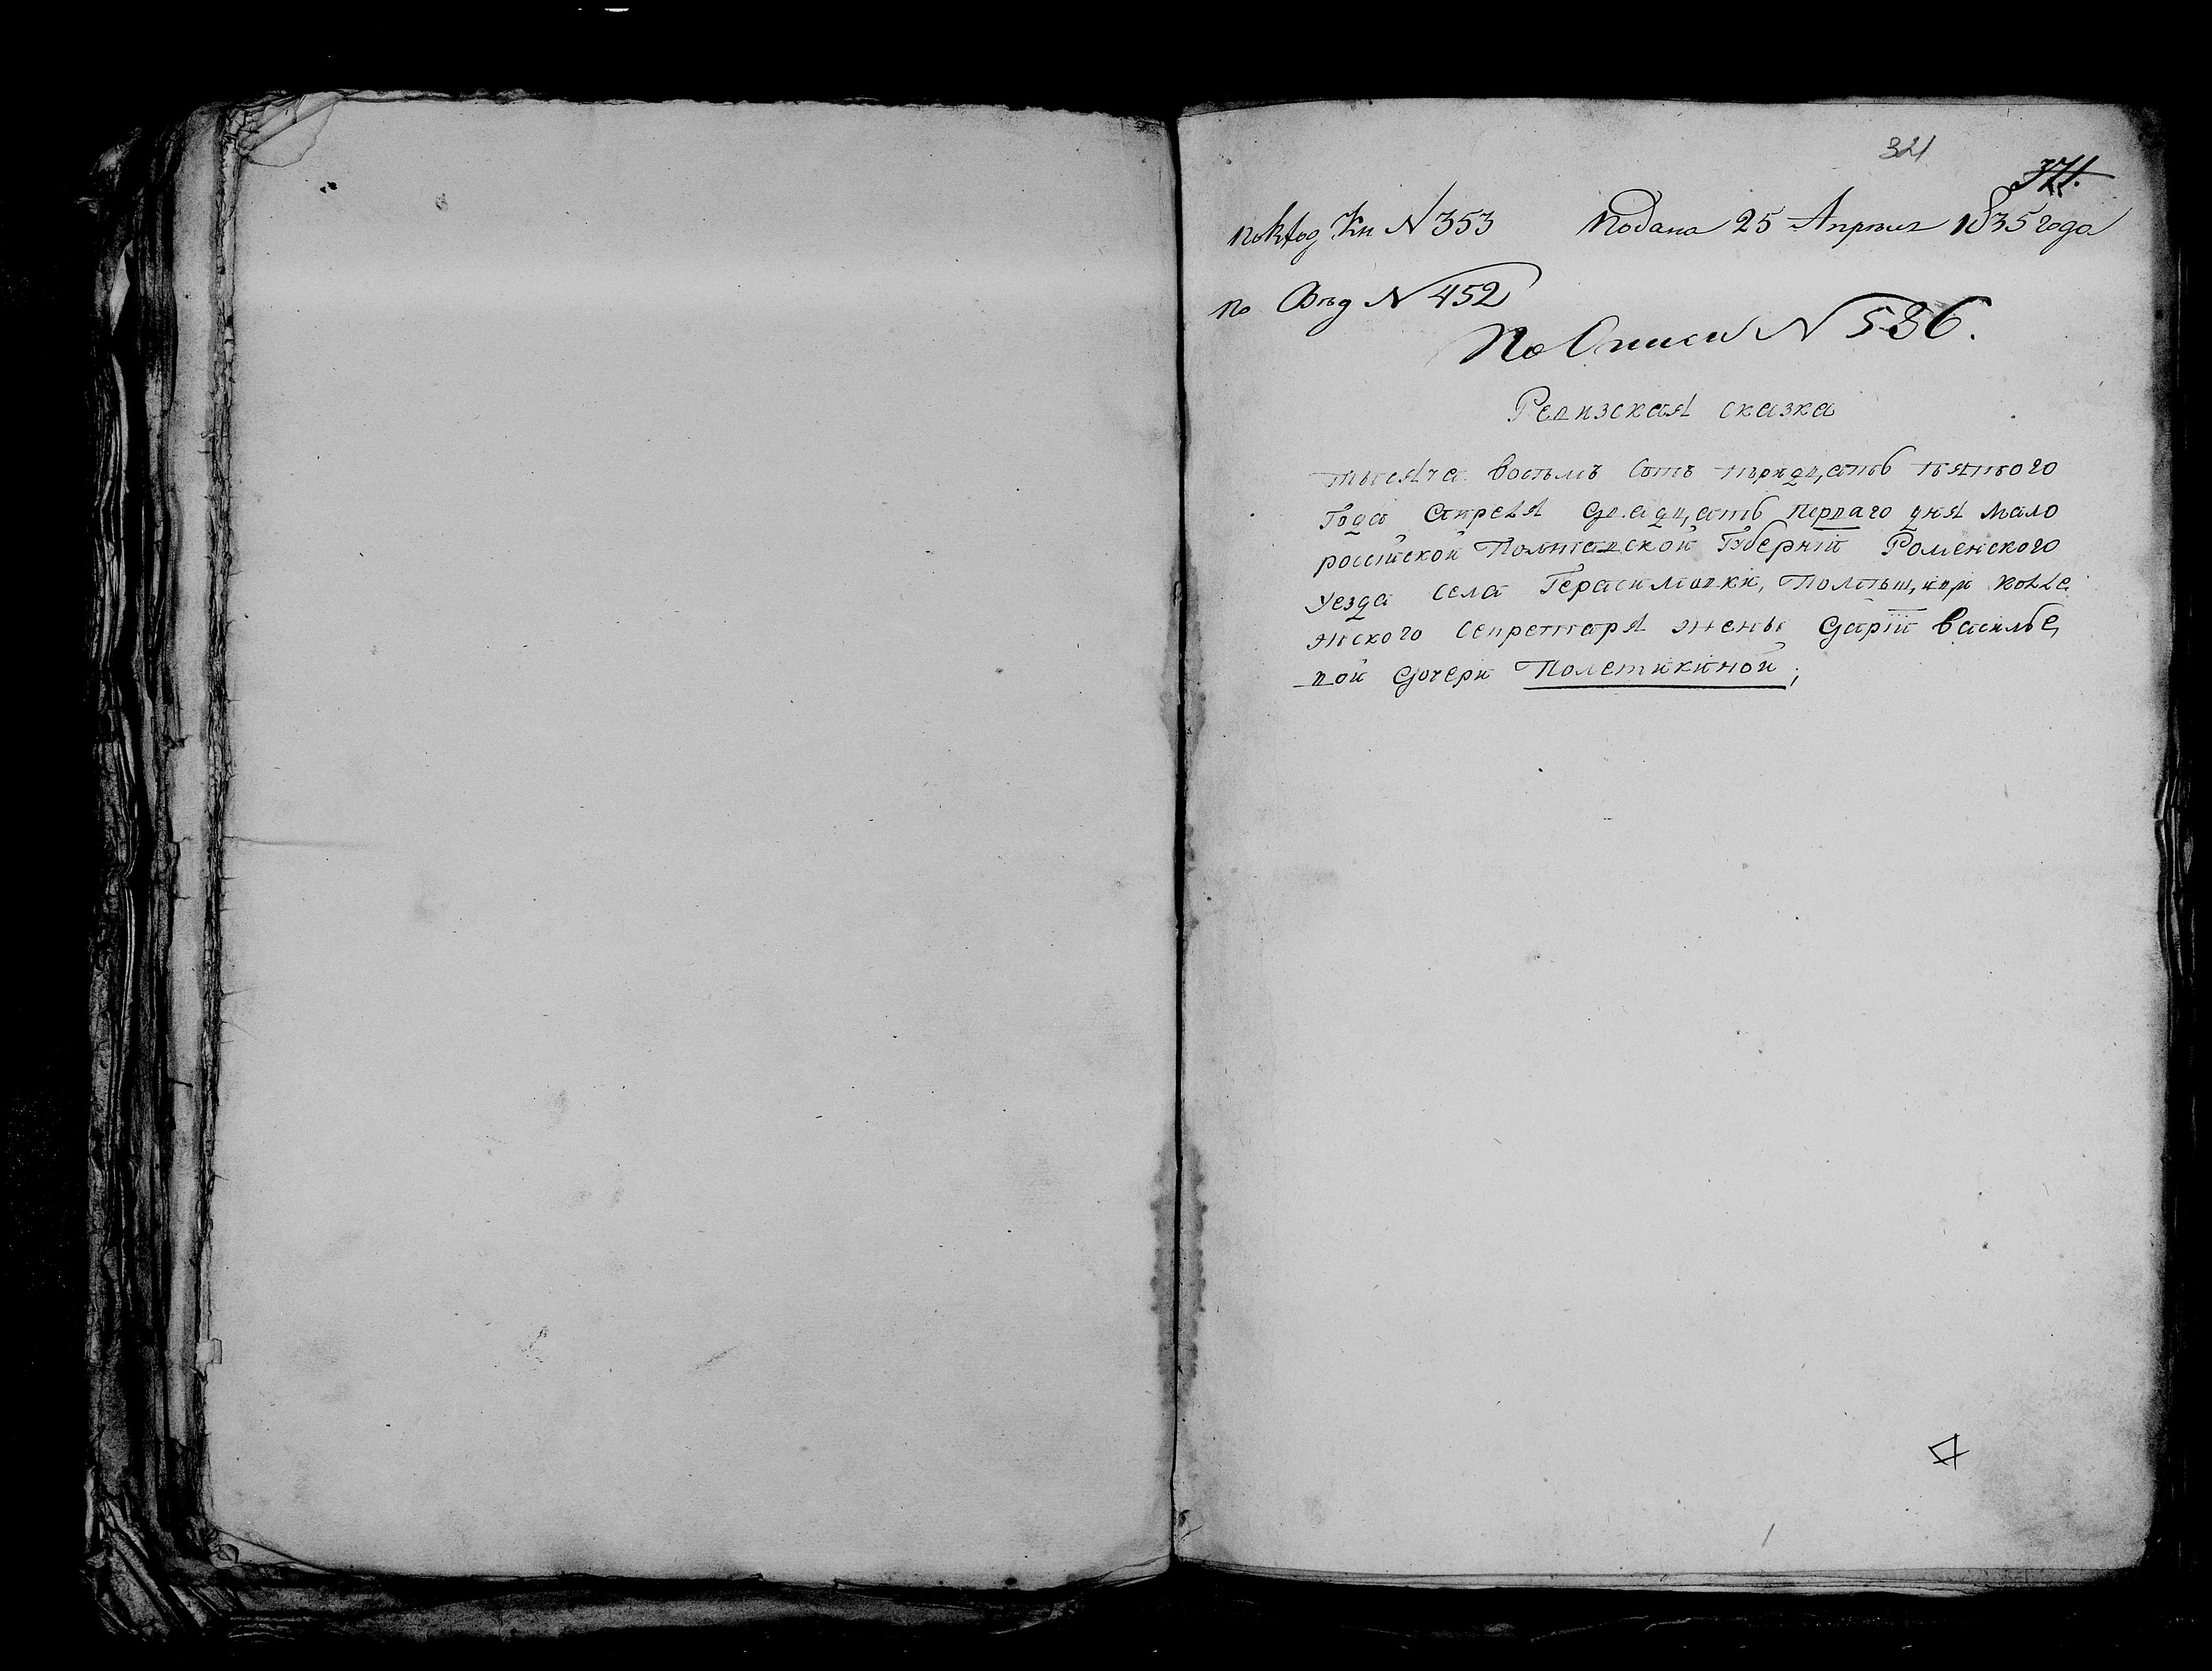 321
371.
по вход Кн N 353 Подана 25 Апреля 1835 года
по Вѣд N 452
По Описи N 586.
Ревизская сказка
тысяча восемь сотъ тридцать пятого
Года апреля двадцать перваго дня мало
российской Полтавской Губерніи Роменского
уезда села Герасимовки, помѣщици колле
жского секретаря жены дарій василье,
вой дочери Полетикиной;